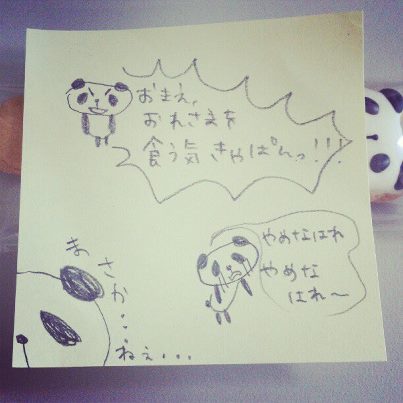 おまえ、
おれさまを
食う気きゃぱんっ!!!
やめなはれ
やめな
はれ〜
まさか...
ねぇ...